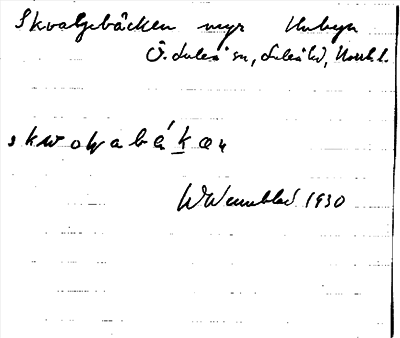 Skvalzebäcken myr Unbyn
Ö. Luleå sn, Luleå td, Norrb. l.
skwoɩʒabék̲ən
W Wennblad 1930